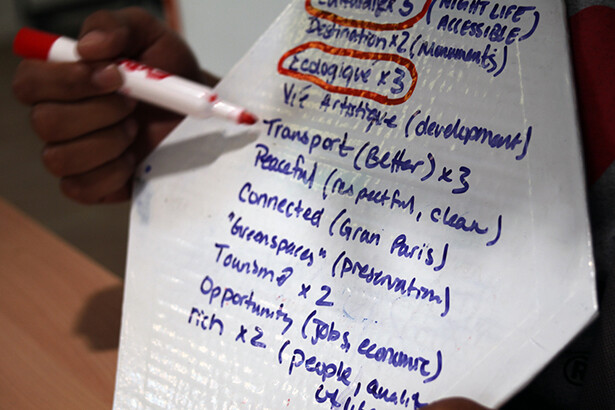 x 3 (NIGHT LIFE
ACCESSIBLE)
Destination x 2 (Monuments)
Ecologique x 3
Vie Artistique (development)
Transport (Better) x 3
Peaceful (respectful, clean)
Connected (Gran Paris)
"Greenspaces" (preservation)
Tourisme x 2
Opportunity (jobs, economic)
rich x 2 (people,